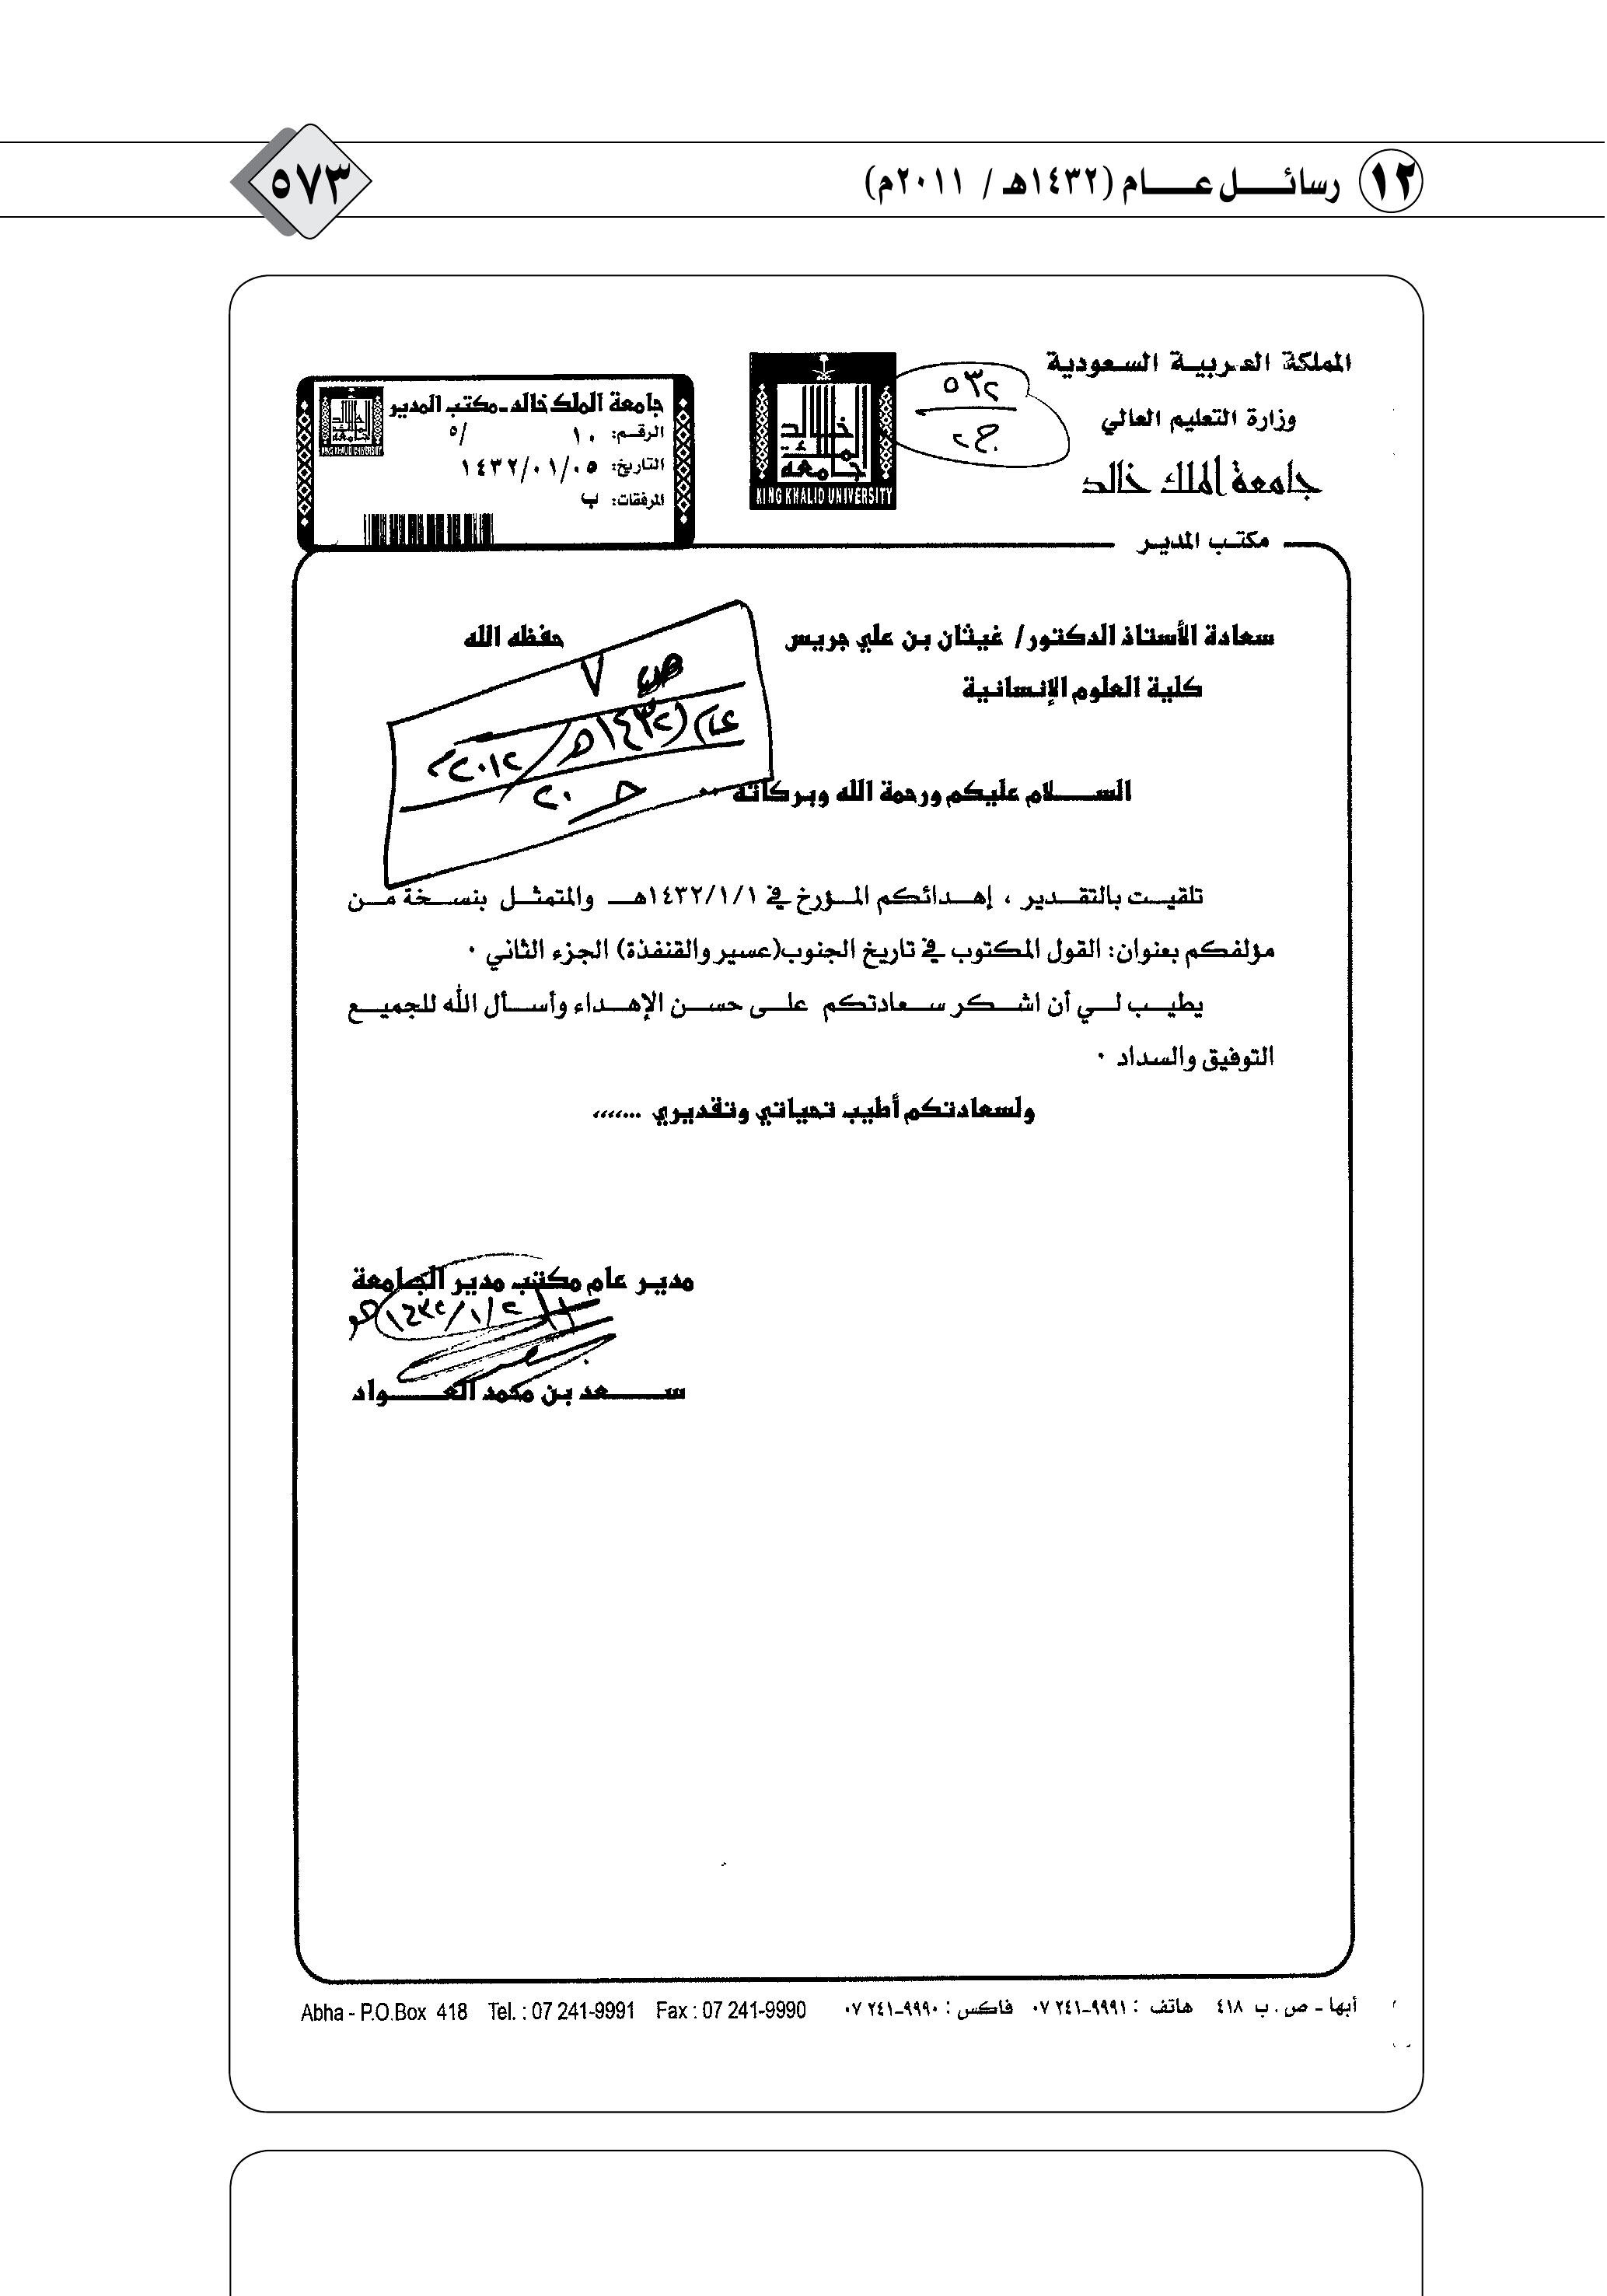 ١٢ رسائــل عــــام (١٤٣٢هـ / ٢٠١١م)
٥٧٣
المملكة العربية السعودية
وزارة التعليم العالي
جامعة الملك خالد
مكتب المدير
٥٣٢
ج٢
KING KHALID UNIVERSITY
جامعة الملك خالد-مكتب المدير
الرقم: ١٠ /٥
التاريخ: ١٤٣٢/٠١/٠٥
المرفقات: ب
سعادة الأستاذ الدكتور/ غيثان بن علي جريس حفظه الله
كلية العلوم الإنسانية
ص ٧
عام (١٤٣٢هـ/٢٠١٢م
ح ٢٠
الســـلام عليكم ورحمة الله وبركاته ..
تلقيت بالتقدير ، إهدائكم المؤرخ في ١٤٣٢/١/١هـ والمتمثل بنسخة من
مؤلفكم بعنوان: القول المكتوب في تاريخ الجنوب(عسير والقنفذة) الجزء الثاني .
يطيب لي أن اشكر سعادتكم على حسن الإهداء وأسأل الله للجميع
التوفيق والسداد .
ولسعادتكم أطيب تحياتي وتقديري ...،،،،
مدير عام مكتب مدير الجامعة
ســـعد بن محمد العـــواد
أبها - ص . ب ٤١٨ هاتف : ٩٩٩١-٢٤١ ٠٧ فاكس : ٩٩٩٠-٢٤١ ٠٧
Abha - P.O.Box 418 Tel. : 07 241-9991 Fax : 07 241-9990